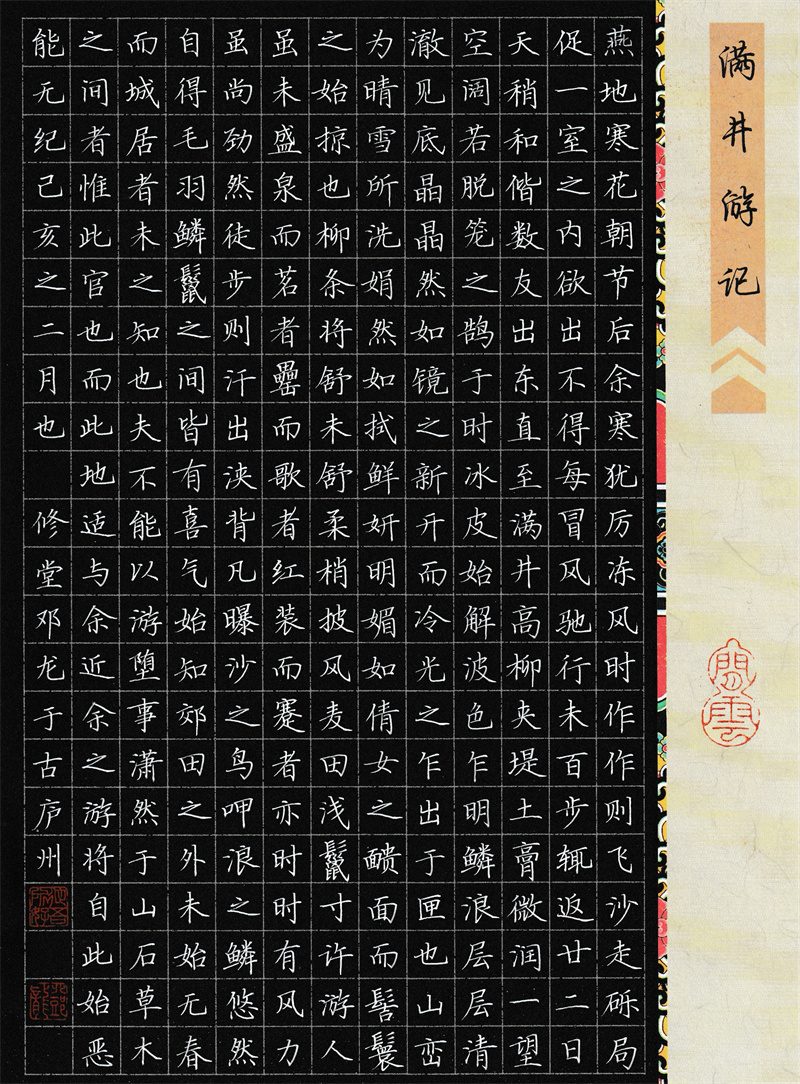 满井游记
燕地寒花朝节后余寒犹厉冻风时作作则飞沙走砾局
促一室之内欲出不得每冒风驰行未百步辄返廿二日
天稍和偕数友出东直至满井高柳夹堤土膏微润一望
空阔若脱笼之鹄于时冰皮始解波色乍明鳞浪层层清
澈见底晶晶然如镜之新开而冷光之乍出于匣也山峦
为晴雪所洗娟然如拭鲜妍明媚如倩女之靧面而髻鬟
之始掠也柳条将舒未舒柔梢披风麦田浅鬣寸许游人
虽未盛泉而茗者罍而歌者红装而蹇者亦时时有风力
虽尚劲然徒步则汗出浃背凡曝沙之鸟呷浪之鳞悠然
自得毛羽鳞鬣之间皆有喜气始知郊田之外未始无春
而城居者未之知也夫不能以游堕事潇然于山石草木
之间者惟此官也而此地适与余近余之游将自此始恶
能无纪己亥之二月也 修堂邓龙于古庐州
閒雲